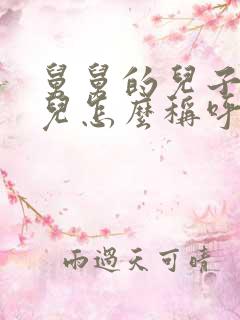 舅舅的兒子
兒怎麼稱呼
雨過天可晴